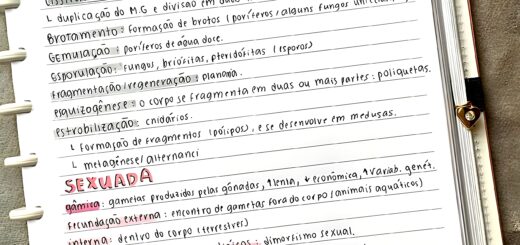 └ duplicação do M.G e divisão em duas
Brotamento: Formação de brotos (poríferos/alguns fungos
Gemulação: poríferos de água doce.
esporulação: Fungos, briófitas, pteridófitas (esporos)
Fragmentação/regeneração: planária.
esquizogênese: o corpo se fragmenta em duas ou mais partes: poliquetas.
estrobilização: cnidários.
└ Formação de fragmentos (pólipos), e se desenvolve em medusas.
└ metagênese/alternanci
SEXUADA
gâmica: gametas produzidos pelas gônadas, ↑lenta, ↓econômica, ↑variab. genét.
Fecundação externa: encontro de gametas fora do corpo (animais aquáticos)
interna: dentro do corpo (terrestres)
: dimorfismo sexual.